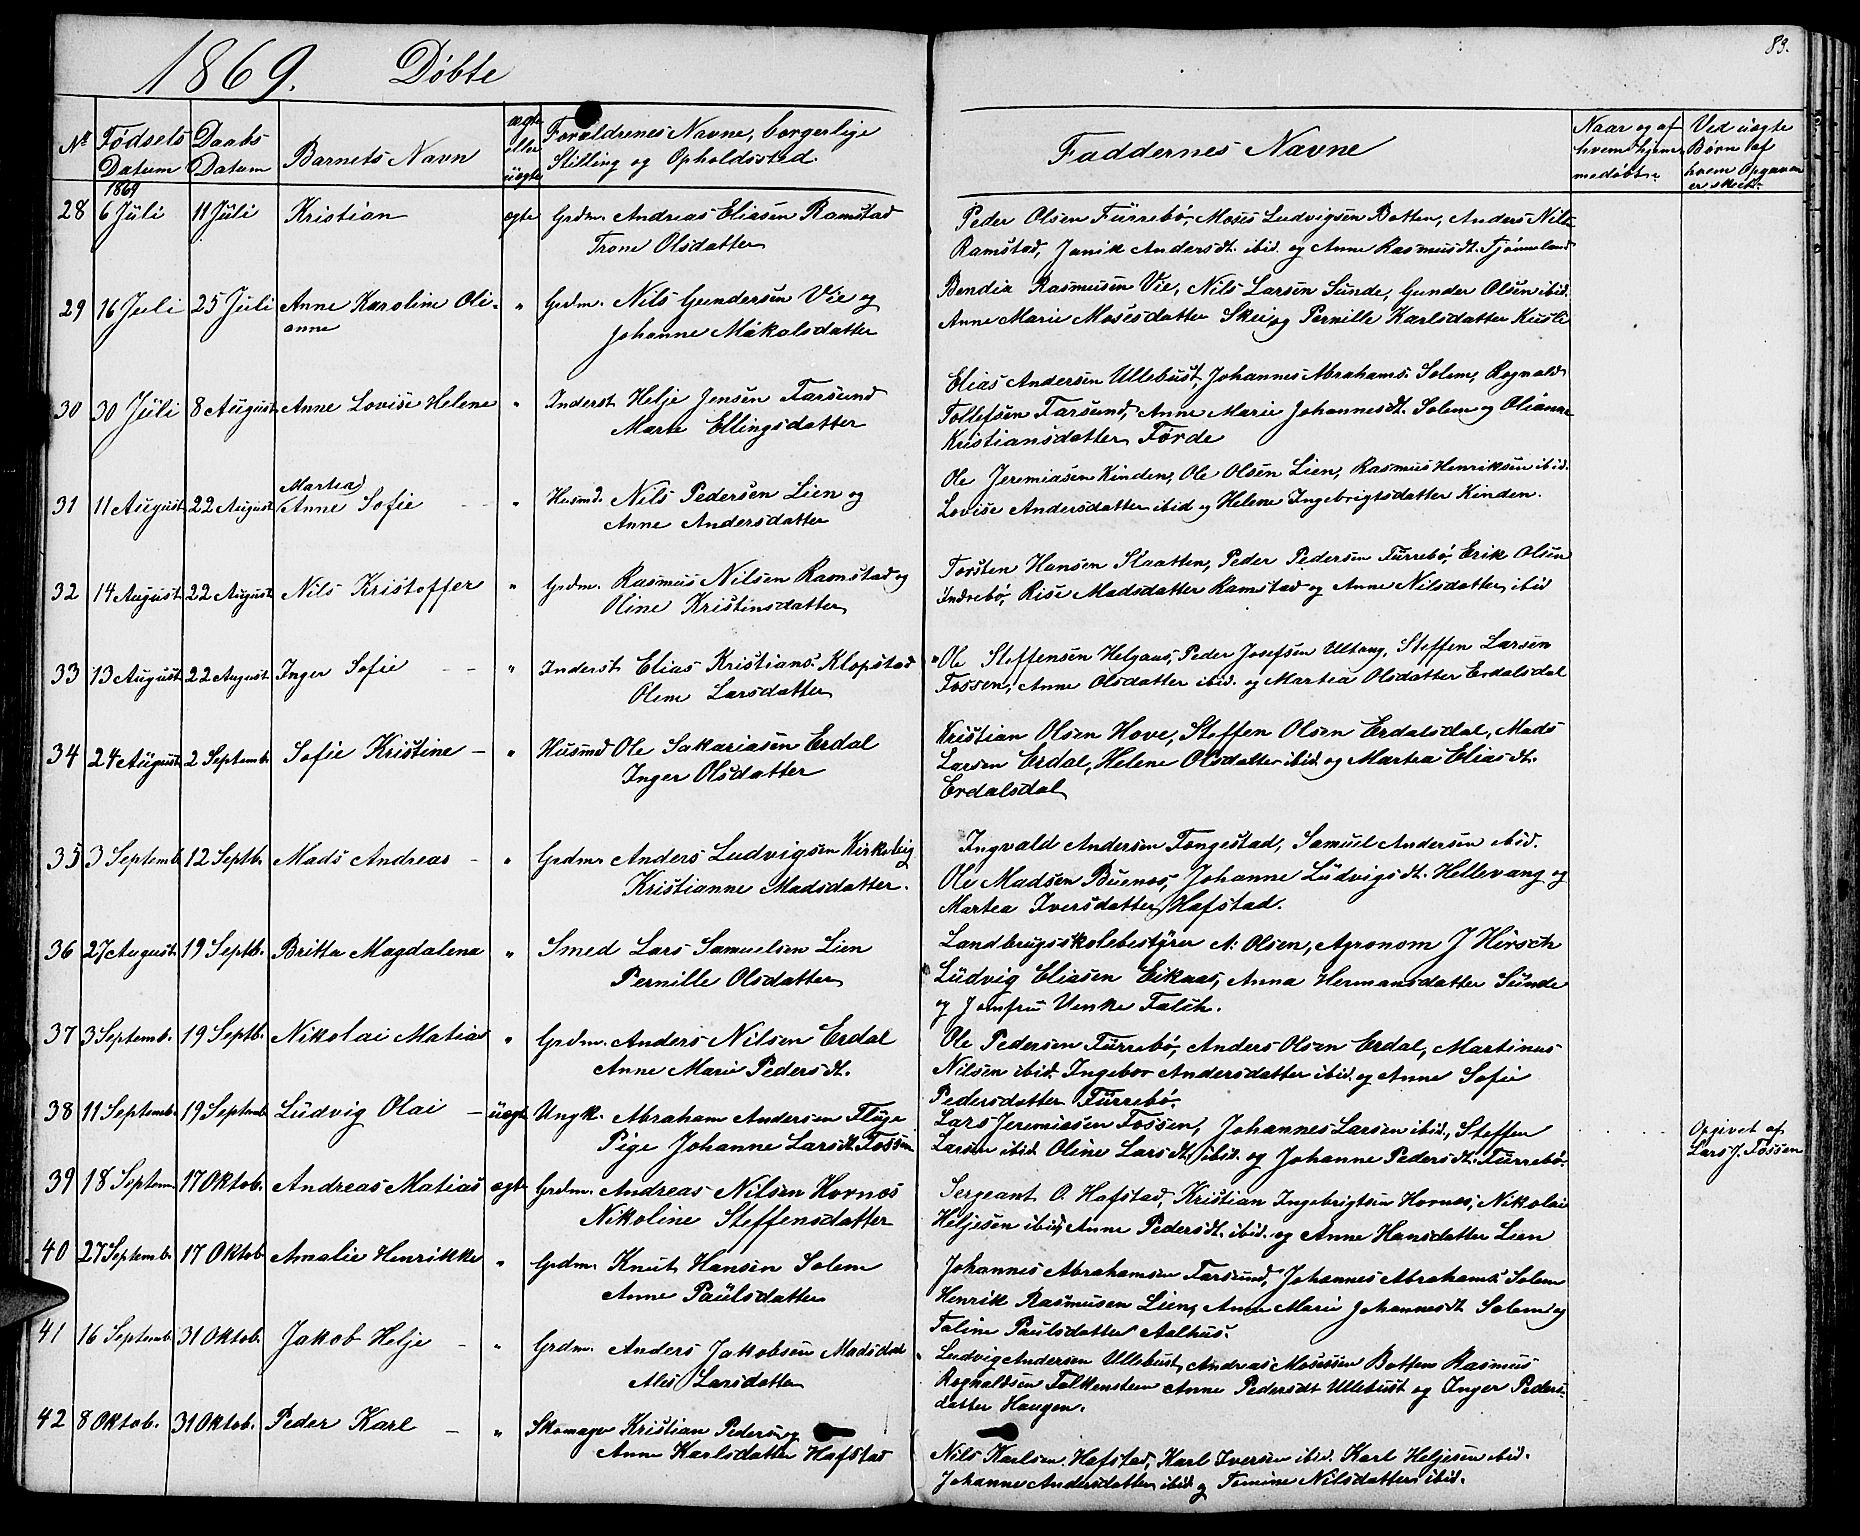 1869. Døbte
83.
№ Fødsels Datum Daabs Datum Barnets Navn ægte eller uægte Forældrenes Navne, borgerlige Stilling og Opholdssted. Faddernes Navne Naar og af hvem hjemmedøbt. Ved uægte Børn af hvem Opgaven er skeet.
1869
28 6 Juli 11 Juli Kristian ægte Grdm. Andreas Eliasen Ramstad
Trone Olsdatter
Peder Olsen Furrebø, Moses Ludvigsen Botten, Anders Nils:
Ramstad, Janik Andersdt. ibid. og Anne Rasmusdt. Tjønneland
29 16 Juli 25 Juli Anne Karoline Oli-
anne
" Grdm. Nils Gundersen Vie og
Johanne Mikalsdatter
Bendix Rasmusen Vie, Nils Larsen Sunde, Gunder Olsen ibid.
Anne Marie Mosesdatter Skei og Pernille Karlsdatter Kusli
30 30 Juli 8 August Anne Lovise Helene " Inderst Helje Jensen Farsund
Marte Ellingsdatter
Elias Andersen Ullebust, Johannes Abrahams. Solem, Ragnald
Tollefsen Farsund, Anne Marie Johannesdt. Solem og Olianne
Kristiansdatter Førde
31 11 August 22 August Martea
Anne Sofie " Husmd. Nils Pedersen Lien og
Anne Andersdatter
Ole Jeremiasen Kinden, Ole Olsen Lien, Rasmus Henriksen ibid.
Lovise Andersdatter ibid og Helene Ingebrigtsdatter Kinden.
32 14 August 22 August Nils Kristoffer " Grdm. Rasmus Nilsen Ramstad og
Oline Kristinsdatter
Torsten Hansen Slaatten, Peder Pedersen Furrebø, Erik Olsen
Indrebø, Rise Madsdatter Ramstad og Anne Nilsdatter ibid
33 13 August 22 August Inger Sofie " Inderst Elias Kristians. Klopstad
Olene Larsdatter
Ole Steffensen Helgaas, Peder Josefsen Ultang, Steffen Larsen
Fossen, Anne Olsdatter ibid. og Martea Olsdatter Erdalsdal
34 24 August 2 Septemb. Sofie Kristine " Husmd Ole Sakariasen Erdal
Inger Olsdatter
Kristian Olsen Hove, Steffen Olsen Erdalsdal, Mads
Larsen Erdal, Helene Olsdatter ibid og Martea Eliasdt.
Erdalsdal
35 3 Septemb. 12 Septb. Mads Andreas " Grdm. Anders Ludvigsen Kirketeig
Kristianne Madsdatter.
Ingvald Andersen Fongestad, Samuel Andersen ibid.
Ole Madsen Buenos, Johanne Ludvigsdt. Hellevang og
Martea Iversdatter Hafstad.
36 27 August. 19 Septb. Britta Magdalena " Smed Lars Samuelsen Lien
Pernille Olsdatter
Landbrugsskolebestyrer A. Olsen, Agronom J Hirsch
Ludvig Eliasen Eikaas, Anna Hermansdatter Sunde
og Jomfru Venke Falck.
37 3 Septemb. 19 Septb. Nikolai Matias " Grdm. Anders Nilsen Erdal
Anne Marie Pedersdt.
Ole Pedersen Furrebø, Anders Olsen Erdal, Martinus
Nilsen ibid. Ingebor Andersdatter ibid. og Anne Sofie
Pedersdatter Furrebø.
38 11 Septemb. 19 Septemb. Ludvig Olai uægte Ungk. Abraham Andersen Fluge
Pige Johanne Larsdt. Fossen
Lars Jeremiasen Fossen, Johannes Larsen ibid., Steffen
Larsen ibid. Oline Larsdt. ibid. og Johanne Pedersdt. Furrebø.
Opgivet af
Lars J. Fossen
39 18 Septem. 17 Oktob. Andreas Matias ægte Grdm. Andreas Nilsen Hornæs
Nikoline Steffensdatter
Sergeant O. Hafstad, Kristian Ingebrigtsen Hornæs, Nikolai
Heljesen ibid, Anne Pedersdt. ibid. og Anne Hansdatter Lien
40 27 Septemb. 17 Oktob Amalie Henrikke " Grdm. Knut Hansen Solem
Anne Paulsdatter
Johannes Abrahamsen Farsund, Johannes Abrahams. Solem
Henrik Rasmusen Lien, Anne Marie Johannesdt. Solem og
Taline Paulsdatter Aalhus.
41 16 Septemb. 31 Oktob. Jakob Helje " Grdm. Anders Jakobsen Madsdal
Alis Larsdatter
Ludvig Andersen Ullebust, Andreas Mosessen Botten Rasmus
Ragnaldsen Falkensteen Anne Pedersdt Ullebust og Inger Peders-
datter Haugen.
42 8 Oktob. 31 Oktob. Peder Karl " Skomager Kristian Peders. og
Anne Karlsdatter Hafstad
Nils Karlsen Hafstad, Karl Iversen ibid. Karl Heljesen ibid.
Johanne Andersdatter ibid. og Tomine Nilsdatter ibid.